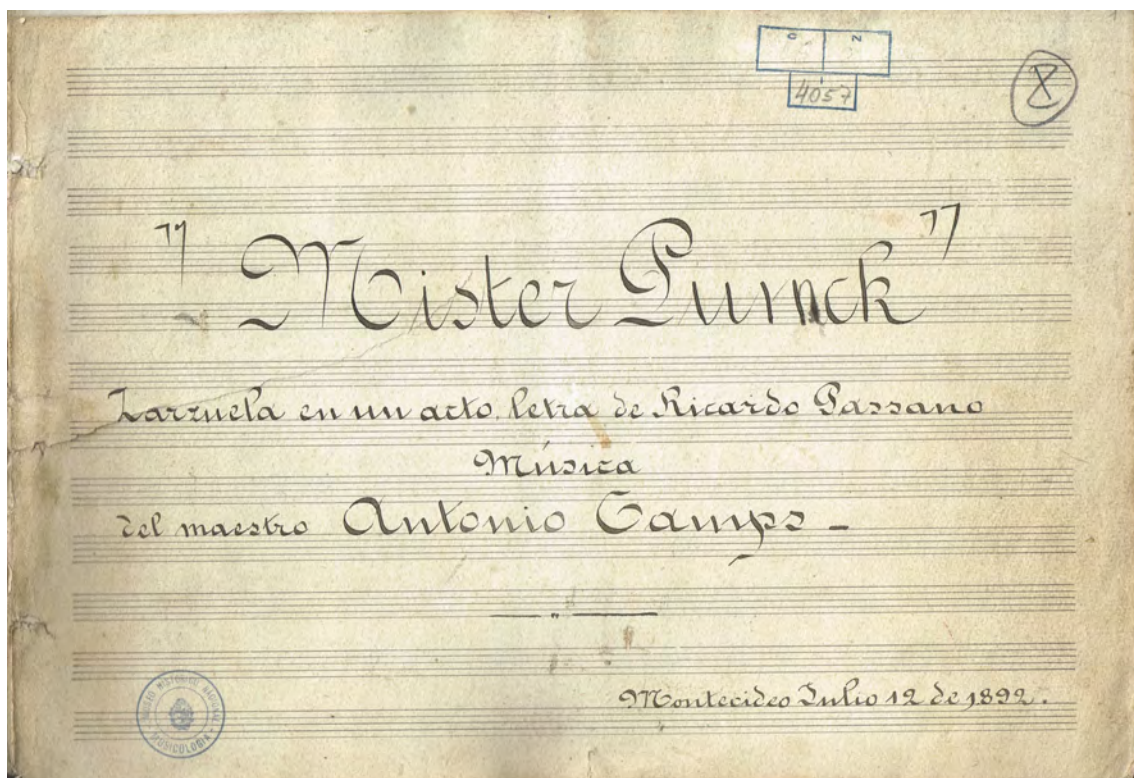 O Z
4057
X
" Mister Punck "
Zarzuela en un acto, letra de Ricardo Passano
Música
del maestro Antonio Camps -
Montevideo Julio 12 de 1892.
MUSEO HISTORICO NACIONAL
MUSICOLOGIA